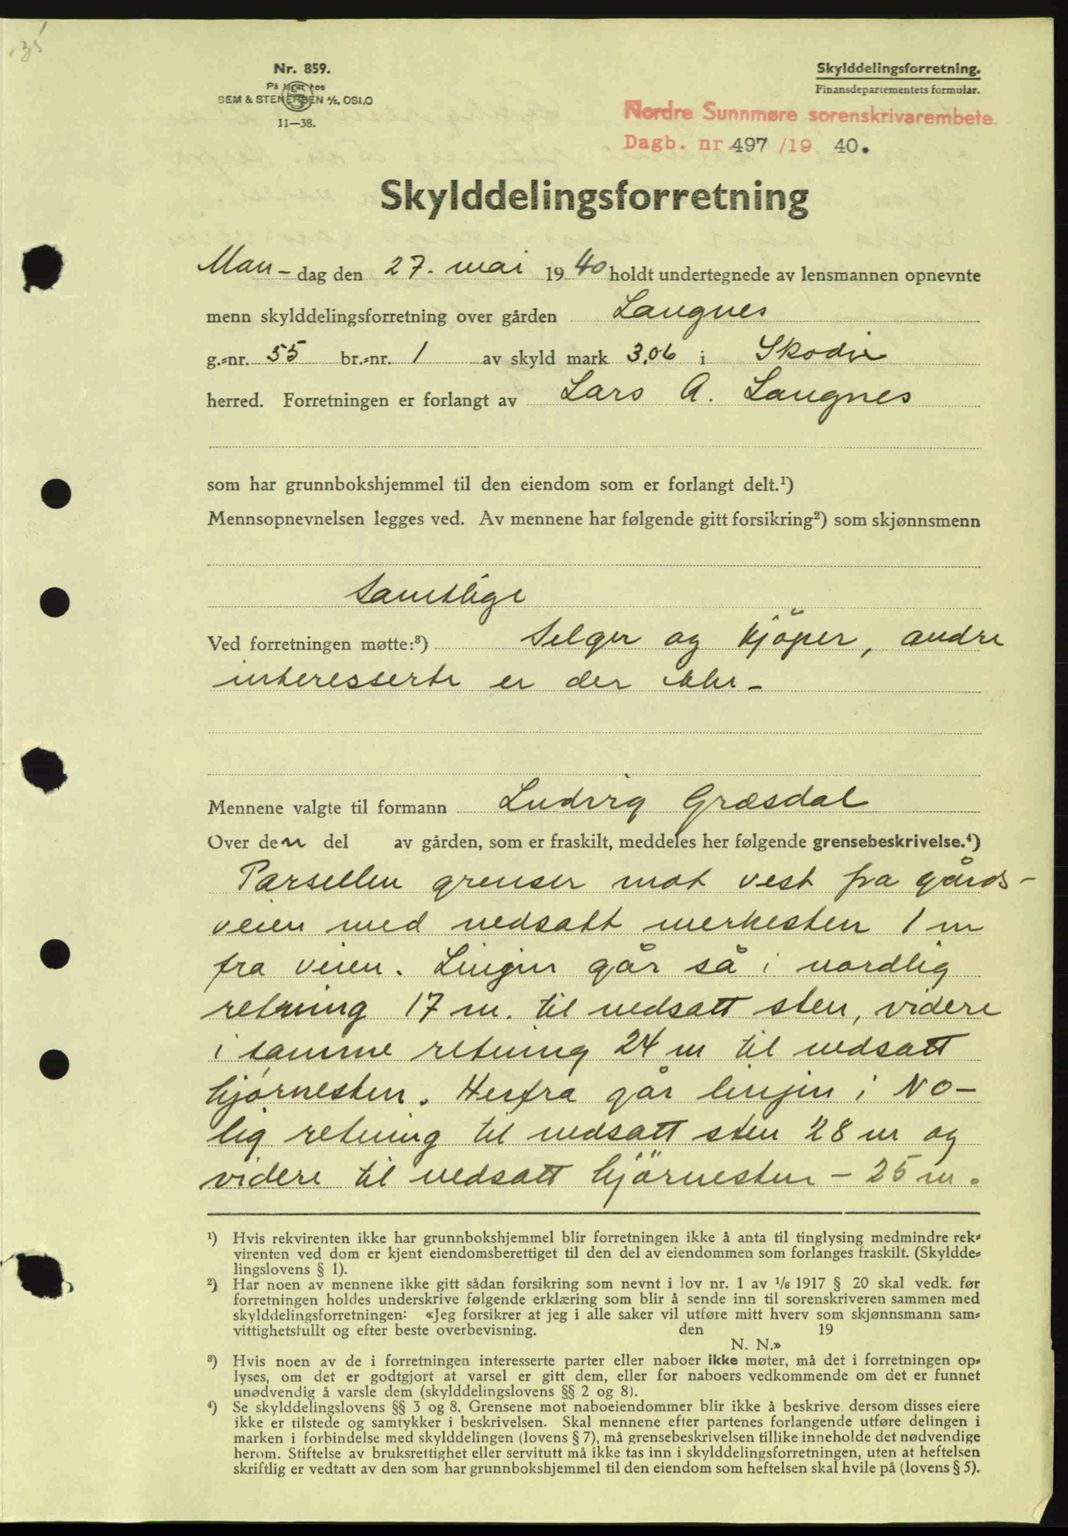 Nr. 859.
På lager hos
SEM & STENERSEN A/S, OSLO
11—38.
Skylddelingsforretning.
Finansdepartementets formular.
Nordre Sunnmøre sorenskrivarembete
Dagb. nr. 497 /19 40.
Skylddelingsforretning
Man- dag den 27. mai 1940 holdt undertegnede av lensmannen opnevnte
menn skylddelingsforretning over gården Langnes
g.-nr. 55 br.-nr. 1 av skyld mark 3,06 i Skodje
herred. Forretningen er forlangt av Lars A. Langnes
som har grunnbokshjemmel til den eiendom som er forlangt delt.¹)
Mennsopnevnelsen legges ved. Av mennene har følgende gitt forsikring²) som skjønnsmenn
Samtlige
Ved forretningen møtte:³) Selger og kjöper, andre
interesserte er der ikke -
Mennene valgte til formann Ludvig Græsdal
Over den del av gården, som er fraskilt, meddeles her følgende grensebeskrivelse.⁴)
Parsellen grenser mot vest fra gårds-
veien med nedsatt merkesten 1 m
fra veien. Linjen går så i nordlig
retning 17 m. til nedsatt sten, videre
i samme retning 24 m til nedsatt
hjørnesten. Herfra går linjen i NO-
lig retning til nedsatt sten 28 m og
videre til nedsatt hjörnesten - 25 m.
¹) Hvis rekvirenten ikke har grunnbokshjemmel blir forretningen ikke å anta til tinglysing medmindre rek-
virenten ved dom er kjent eiendomsberettiget til den del av eiendommen som forlanges fraskilt. (Skyldde-
lingslovens § 1).
²) Har noen av mennene ikke gitt sådan forsikring som nevnt i lov nr. 1 av 1/6 1917 § 20 skal vedk. før
forretningen holdes underskrive følgende erklæring som blir å sende inn til sorenskriveren sammen med
skylddelingsforretningen: «Jeg forsikrer at jeg i alle saker vil utføre mitt hverv som skjønnsmann sam-
vittighetsfullt og efter beste overbevisning. den 19
N. N.»
³) Hvis noen av de i forretningen interesserte parter eller naboer ikke møter, må det i forretningen op-
lyses, om det er godtgjort at varsel er gitt dem, eller for naboers vedkommende om det er funnet
unødvendig å varsle dem (skylddelingslovens §§ 2 og 8).
⁴) Se skylddelingslovens §§ 3 og 8. Grensene mot naboeiendommer blir ikke å beskrive, dersom disses eiere
ikke er tilstede og samtykker i beskrivelsen. Skal mennene efter partenes forlangende utføre delingen i
marken i forbindelse med skylddelingen (lovens § 7), må grensebeskrivelsen tillike inneholde det nødvendige
herom. Stiftelse av bruksrettighet eller servitutt må ikke tas inn i skylddelingsforretningen, uten at heftelsen
skriftlig er vedtatt av den som har grunnbokshjemmel til den eiendom som heftelsen skal hvile på (lovens § 5).